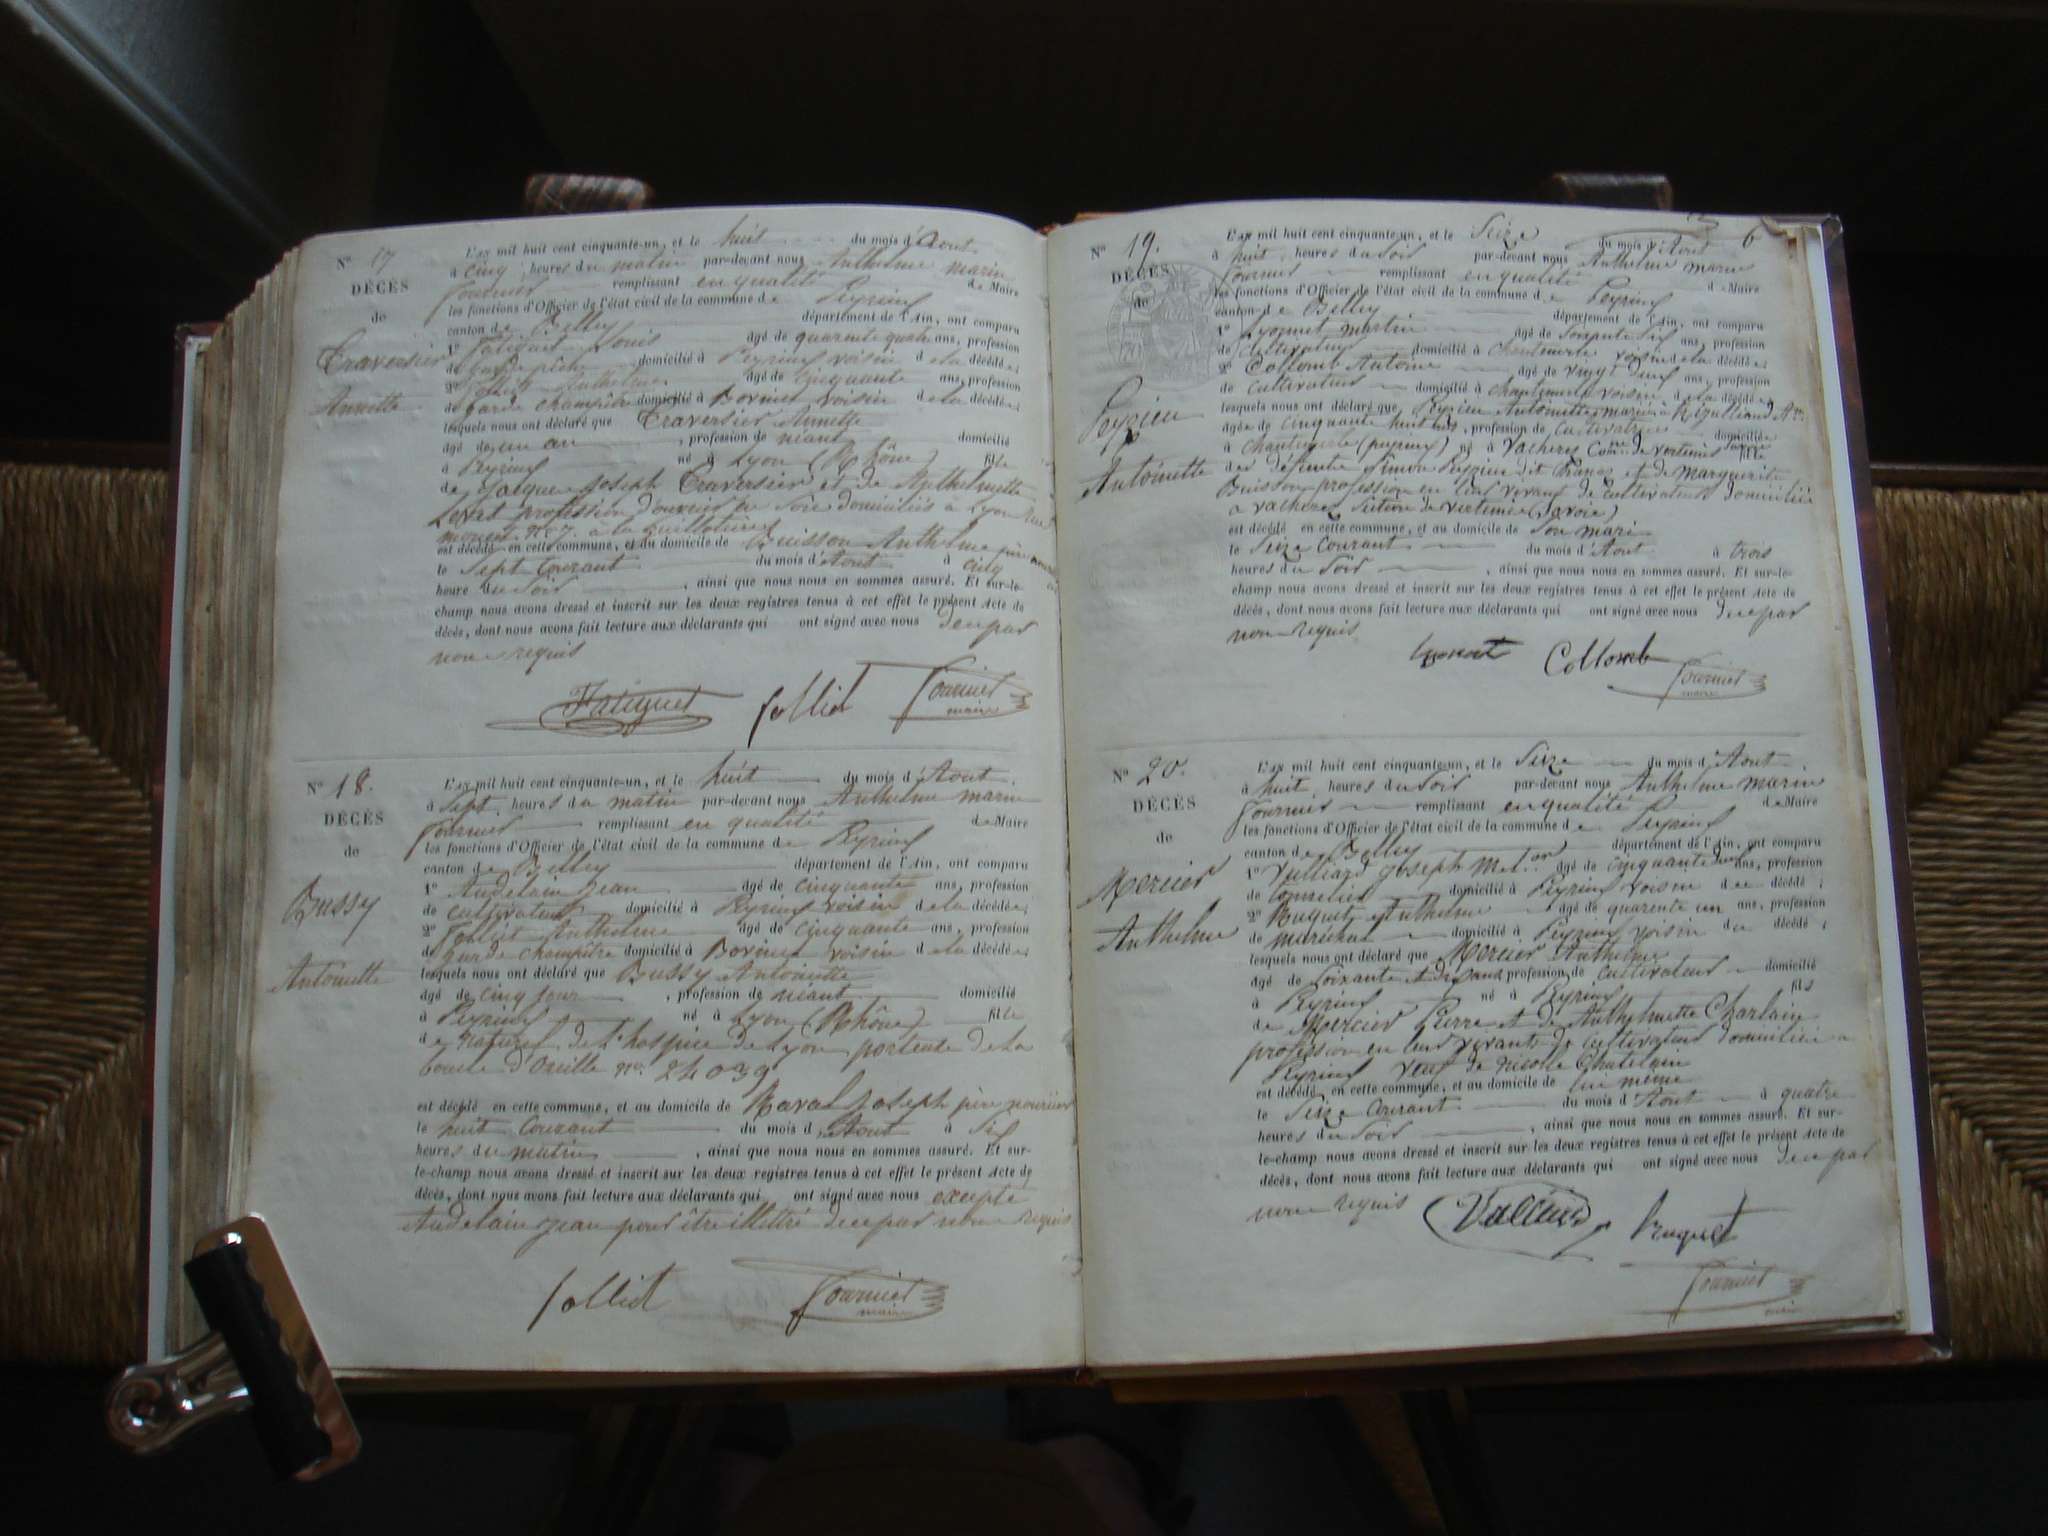 N° 17
DÉCÈS
de
Traversier
Annette
L'an mil huit cent cinquante-un, et le huit du mois d'Aout
à cinq heures du matin par-devant nous Anthelme marin
Fournier remplissant en qualité de Maire
les fonctions d'Officier de l'état civil de la commune de Peyrieu
canton de Belley département de l'Ain, ont comparu
1° Fatiguet Louis agé de quarente quatre ans, profession
de domicilié à Peyrieu voisin de la décédée;
2° Jolliet Anthelme agé de cinquante ans, profession
de garde champêtre domicilié à Bovinel voisin de la décédée;
lesquels nous ont déclaré que Traversier Annette
agé de un an, profession de néant domicilié
à Peyrieu né à Lyon (Rhône) fille
de Jacques Joseph Traversier et de Anthelmette
profession d'ouvrier en Soie domiciliés à Lyon rue
n° 7. à la Guillotière
est décédé en cette commune, et au domicile de Buisson Anthelme père nourricier
le Sept Courant du mois d'Aout à cinq
heure du Soir, ainsi que nous nous en sommes assuré. Et sur-le-
champ nous avons dressé et inscrit sur les deux registres tenus à cet effet le présent Acte de
décès, dont nous avons fait lecture aux déclarants qui ont signé avec nous de ce par
nous requis
Fatiguet Jolliet Fournier
maire
N° 18.
DÉCÈS
de
Bussy
Antoinette
L'an mil huit cent cinquante-un, et le huit du mois d'Aout
à Sept heures du matin par-devant nous Anthelme marin
Fournier remplissant en qualité de Maire
les fonctions d'Officier de l'état civil de la commune de Peyrieu
canton de Belley département de l'Ain, ont comparu
1° Andelain Jean agé de cinquante ans, profession
de cultivateur domicilié à Peyrieu voisin de la décédée;
2° Jolliet Anthelme agé de cinquante ans, profession
de garde champêtre domicilié à Bovinel voisin de la décédée;
lesquels nous ont déclaré que Bussy Antoinette
agé de cinq jour, profession de néant domicilié
à Peyrieu né à Lyon (Rhône) fille
de naturel de l'hospice de Lyon portente de la
boucle d'Oreille n° 24039
est décédé en cette commune, et au domicile de Maral Joseph père nourricier
le huit Courant du mois d'Aout à Six
heures du matin, ainsi que nous nous en sommes assuré. Et sur-
le-champ nous avons dressé et inscrit sur les deux registres tenus à cet effet le présent Acte de
décès, dont nous avons fait lecture aux déclarants qui ont signé avec nous excepté
Andelain Jean pour être illettré de ce par nous requis
Jolliet Fournier
maire
6
N° 19.
DÉCÈS
de
Peyrieu
Antoinette
L'an mil huit cent cinquante-un, et le Seize du mois d'Aout
à huit heures du Soir par-devant nous Anthelme marin
Fournier remplissant en qualité de Maire
les fonctions d'Officier de l'état civil de la commune de Peyrieu
canton de Belley département de l'Ain, ont comparu
1° Lyonnet martin agé de Soixante Six ans, profession
de Cultivateur domicilié à Chantemerle voisin de la décédée;
2° Collomb Antoine agé de vingt deux ans, profession
de cultivateur domicilié à Chantemerle voisin de la décédée;
lesquels nous ont déclaré que Peyrieu Antoinette mariée à
agée de cinquante huit ans, profession de Cultivatrice domiciliée
à Chantemerle (peyrieu) né à Vacheres Comne de fille
des défunts Simon Peyrieu dit françois et de Marguerite
Buisson profession en leur vivant de Cultivateur domiciliés
à Vacheres (Savoie)
est décédé en cette commune, et au domicile de Son mari
le Seize Courant du mois d'Aout à trois
heures du Soir, ainsi que nous nous en sommes assuré. Et sur-le-
champ nous avons dressé et inscrit sur les deux registres tenus à cet effet le présent Acte de
décès, dont nous avons fait lecture aux déclarants qui ont signé avec nous de ce par
nous requis
Collomb Fournier
maire
N° 20.
DÉCÈS
de
Mercier
Anthelme
L'an mil huit cent cinquante-un, et le Seize du mois d'Aout
à huit heures du Soir par-devant nous Anthelme marin
Fournier remplissant en qualité de Maire
les fonctions d'Officier de l'état civil de la commune de Peyrieu
canton de Belley département de l'Ain, ont comparu
1° Vulliard Joseph agé de cinquante ans, profession
de domicilié à Peyrieu voisin du décédé;
2° Anthelme agé de quarente un ans, profession
de maréchal domicilié à Peyrieu voisin du décédé;
lesquels nous ont déclaré que Mercier Anthelme
agé de Soixante et dix ans profession de Cultivateur domicilié
à Peyrieu né à Peyrieu fils
de Mercier Pierre et de Anthelmette Charlain
profession en leur vivant de Cultivateur domiciliés à
Peyrieu veuf de Nicolle Chatelain
est décédé en cette commune, et au domicile de lui même
le Seize Courant du mois d'Aout à quatre
heures du Soir, ainsi que nous nous en sommes assuré. Et sur-
le-champ nous avons dressé et inscrit sur les deux registres tenus à cet effet le présent Acte de
décès, dont nous avons fait lecture aux déclarants qui ont signé avec nous de ce par
nous requis
Fournier